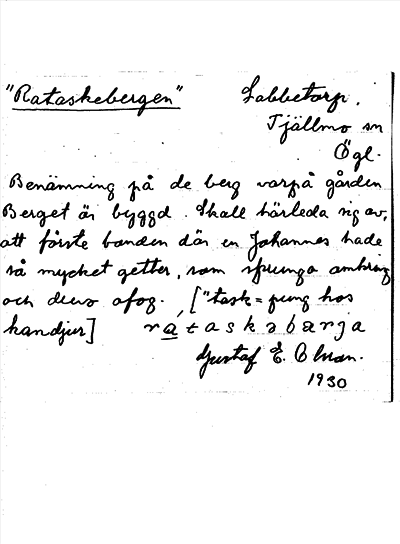 "Rataskebergen" Labbetorp.
Tjällmo sn
Ögl.
Benämning på de berg varpå gården
Berget är byggd. Skall härleda sig av,
att förste bonden där en Johannes hade
så mycket getter, som sprungo omkring
och drevo ofog. ["task = pung hos
handjur] rataskabärja
Gustaf E. Olsson.
1930